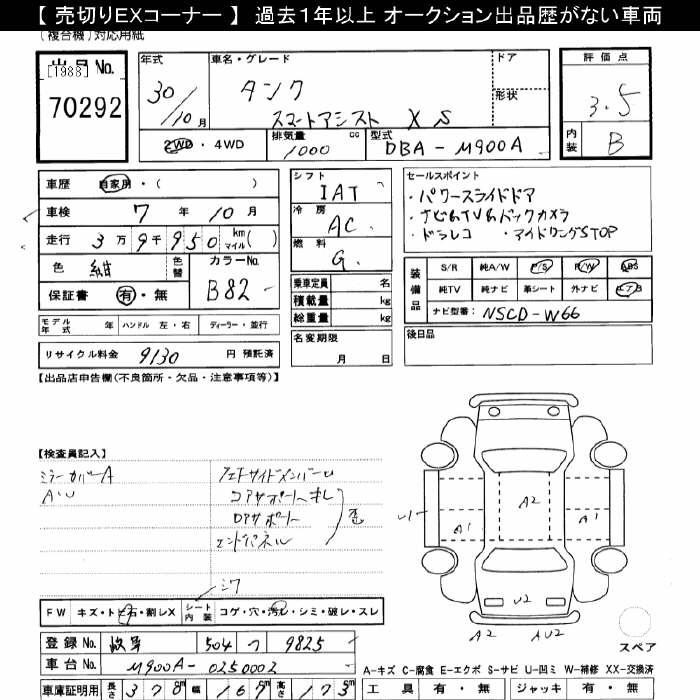 【 売切りEXコーナー 】 過去1年以上 オークション出品歴がない車両
(複合機)対応用紙
出品No.
[1988]
70292
年式
30/10月
車名・グレード
タンク
スマートアシスト X S
ドア
形状
評価点
3.5
内装
B
2WD・4WD
排気量
1000 cc
型式
DBA-M900A
車歴 自家用・( )
車検 7年 10月
走行 3万9千950 km マイル( )
色 紺 色替
カラーNo.
B82
保証書 有・無
シフト
IAT
冷房
AC
燃料
G.
乗車定員 名
積載量 kg
総重量 kg
名変期限
月 日
セールスポイント
・パワースライドドア
・ナビ&TV&バックカメラ
・ドラレコ ・アイドリングSTOP
装備品
S/R 純A/W P/S P/W ABS
純TV 純ナビ 革シート 外ナビ エアB
ナビ型番: NSCD-W66
後日品
モデル年式 年 ハンドル 左・右 ディーラー・並行
リサイクル料金 9130 円 預託済
【出品店申告欄(不良箇所・欠品・注意事項等)】
【検査員記入】
ミラーカバーA
A・U
コアサポート
エンドパネル
歪
シワ
U1
A2
A1
A1
U2
A2
AU2
スペア
FW キズ・トビ石・割レX
シート内装 コゲ・穴・汚レ・シミ・破レ・スレ
登録No. 岐阜 504 つ 9825
車台No. M900A-0250002
車庫証明用 長さ 378 幅 167 高さ 173
A-キズ C-腐食 E-エクボ S-サビ U-凹ミ W-補修 XX-交換済
工具 有・無 ジャッキ 有・無